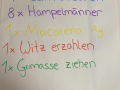 8x Hampelmänner
1x Macarena
1x Witz erzählen
1x Grimasse ziehen